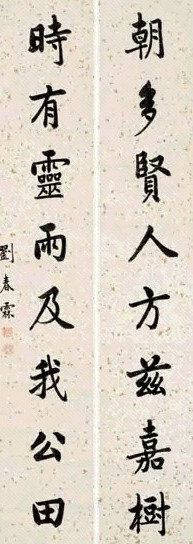 朝多賢人方茲嘉樹
時有靈雨及我公田
劉春霖